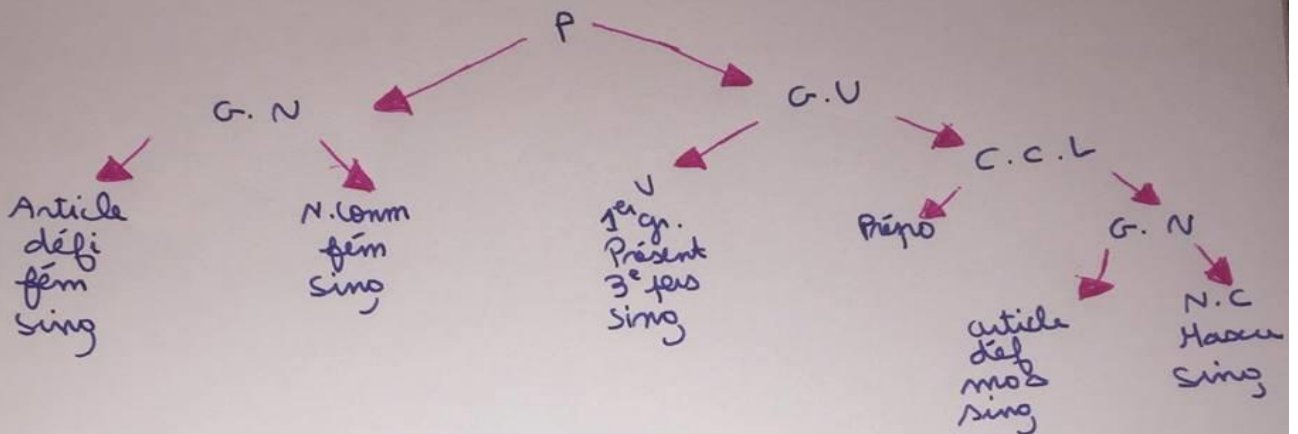 P
G.N
G.V
C.C.L
Article
défi
fém
sing
N.Comm
fém
sing
V
1er gr.
Présent
3e pers
sing
Prépo
G.N
article
déf
mas
sing
N.C
Mascu
sing